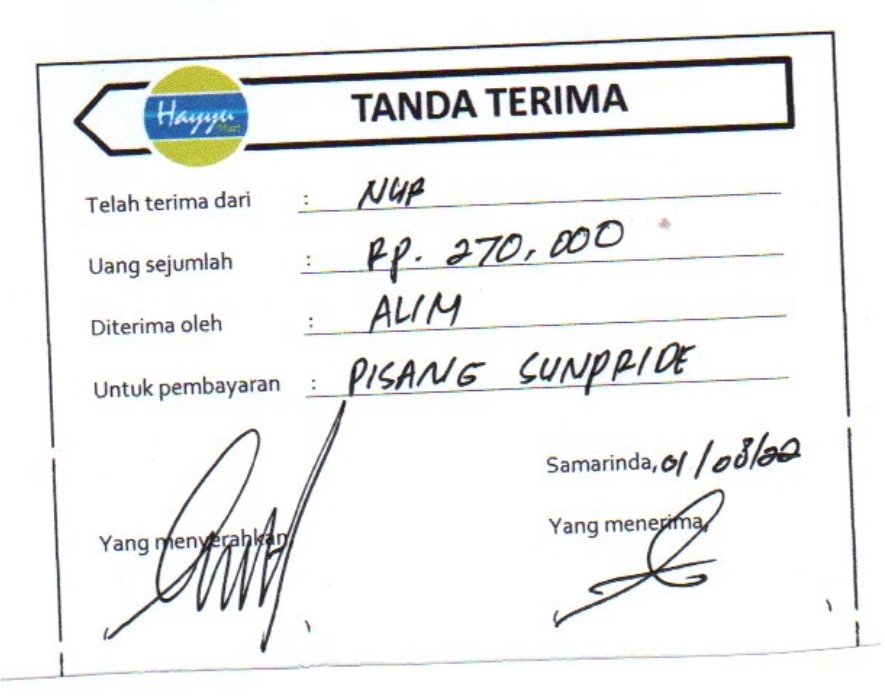 Hayyu Mart
TANDA TERIMA
Telah terima dari : NUR
Uang sejumlah : Rp. 270,000
Diterima oleh : ALIM
Untuk pembayaran : PISANG SUNPRIDE
Samarinda, 01/08/22
Yang menyerahkan
Yang menerima,